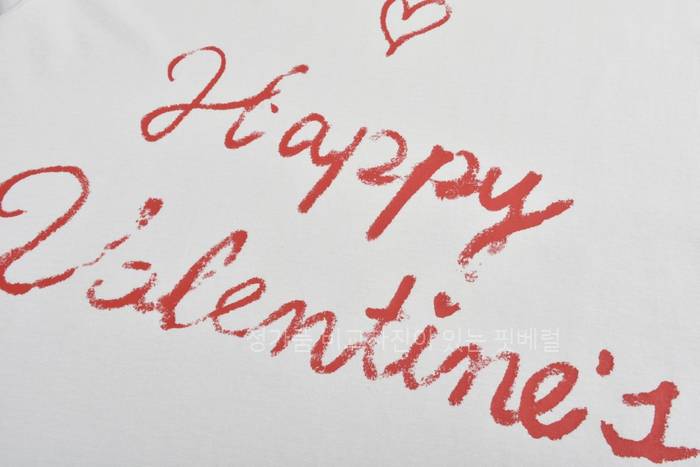 Happy
Valentine's
정가품 비교사진이 있는 핏베럴